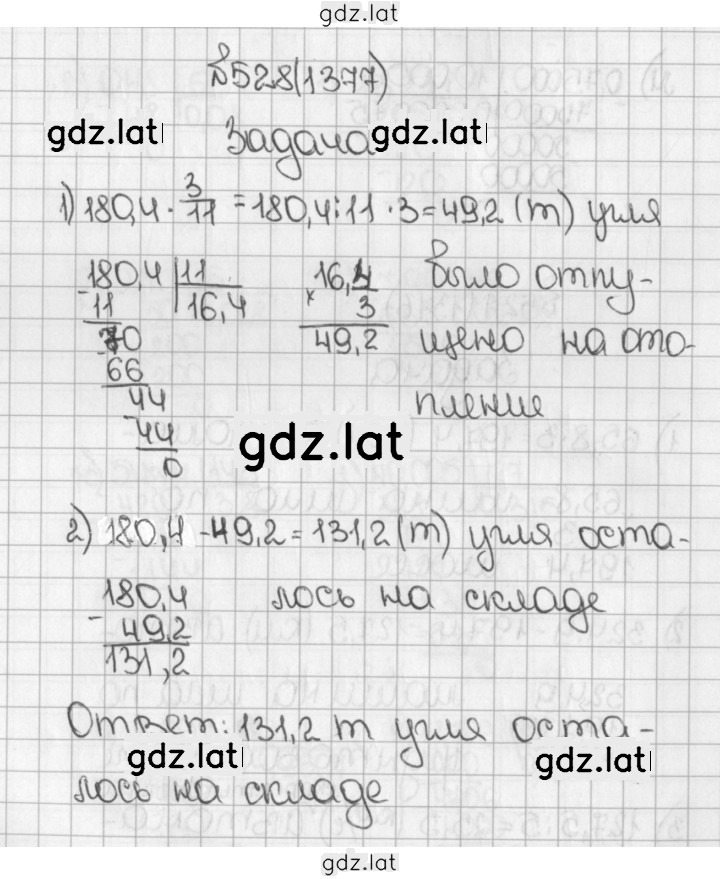 gdz.lat
№528(1377)
gdz.lat Задача gdz.lat
1) 180,4 · 3/11 = 180,4:11 · 3 = 49,2 (т) угля
180,4 | 11   16,4   было отпу-
- 11   16,4   × 3
70   49,2   щено на ото-
- 66
44   пление
- 44
0
gdz.lat
2) 180,4 - 49,2 = 131,2 (т) угля оста-
180,4   лось на складе
- 49,2
131,2
Ответ: 131,2 т угля оста-
gdz.lat gdz.lat
лось на складе
gdz.lat